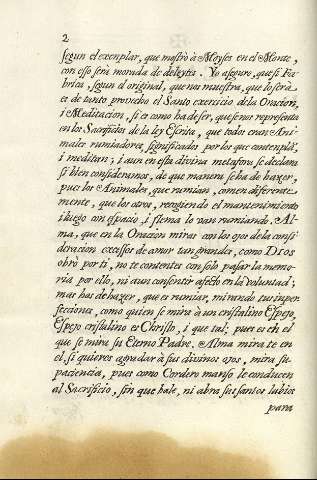 2
segun el exemplar, que mostrò à Moyses en el Monte,
con esso serà morada de deleytes. Yo asseguro, que si Fa-
brica, segun el original, que nos muestra, que lo serà
es de tanto provecho el Santo exercicio de la Oracion,
i Meditacion, si es como ha de ser, que se nos representa
en los Sacrificios de la ley Escrita, que todos eran Ani-
males rumiadores, significados por los que contemplã,
i meditan; i aun en esta divina metafora se declara
si bien consideramos, de que manera se ha de hazer,
pues los Animales, que rumian, comen diferente
mente, que los otros, recogiendo el mantenimiento
i luego con espacio, i flema lo van rumiando. Al-
ma, que en la Oracion miras con los ojos de la consi
deracion excessos de amor tan grandes, como Dios
obrò por ti, no te contentes con solo passar la memo-
ria por ello, ni aun consentir afecto en la voluntad;
mas has de hazer, que es rumiar, mirando tus imper
fecciones, como quien se mira à un cristalino Espejo,
Espejo cristalino es Christo, i que tal; pues es en el
que se mira su Eterno Padre. Alma mira te en
el si quieres agradar à sus divinos ojos, mira su
paciencia, pues como Cordero manso le conducen
al Sacrificio, sin que bale, ni abra sus santos labios
para